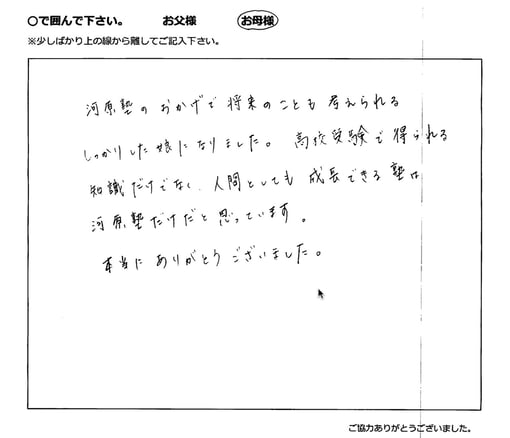 ○で囲んで下さい。 お父様 お母様
※少しばかり上の線から離してご記入下さい。
河原塾のおかげで将来のことも考えられる
しっかりした娘になりました。高校受験で得られる
知識だけでなく、人間としても成長できる塾は
河原塾だけだと思っています。
本当にありがとうございました。
ご協力ありがとうございました。